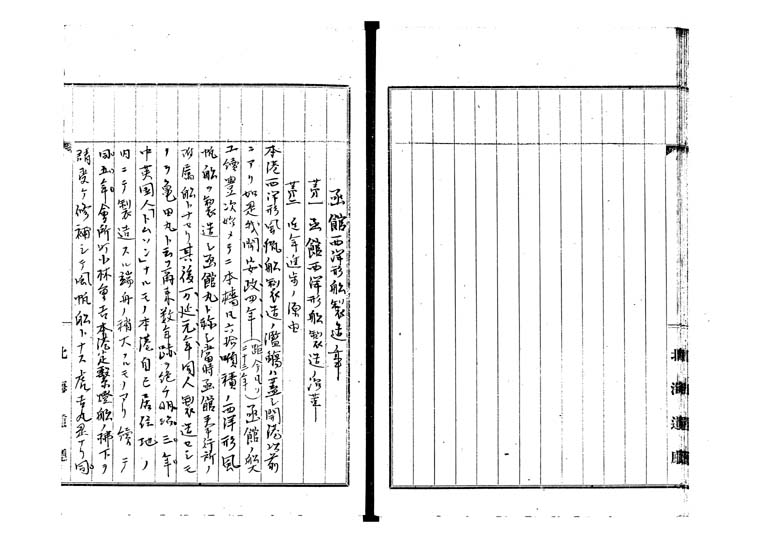 函館西洋形船製造ノ章
第一 函館西洋形船製造ノ沿革
第二 近年進歩ノ原由
本港西洋形風帆船製造ノ濫觴ハ蓋シ開港以前
ニアリ如是我聞安政四年(距今凡ソ二十三年)函館ノ船大
工續豊次始メテ二本檣凡六拾噸積ノ西洋形風
帆船ヲ製造シ函館丸ト称シ當時函館奉行所ノ
所属船トナセリ其後万延元年同人製造セシモ
ノヲ亀田丸ト云フ爾来数年跡ヲ絶チ明治三年
中英国人「トムソン」ナルモノ本港自己居住地ノ
内ニテ製造スル端舟ノ稍大ナルモノアリ續テ
同五年會所町小林重吉本港定繋燈船ノ拂下ヲ
請受ケ修補シテ風帆船トナス
北海道廳
北海道廳